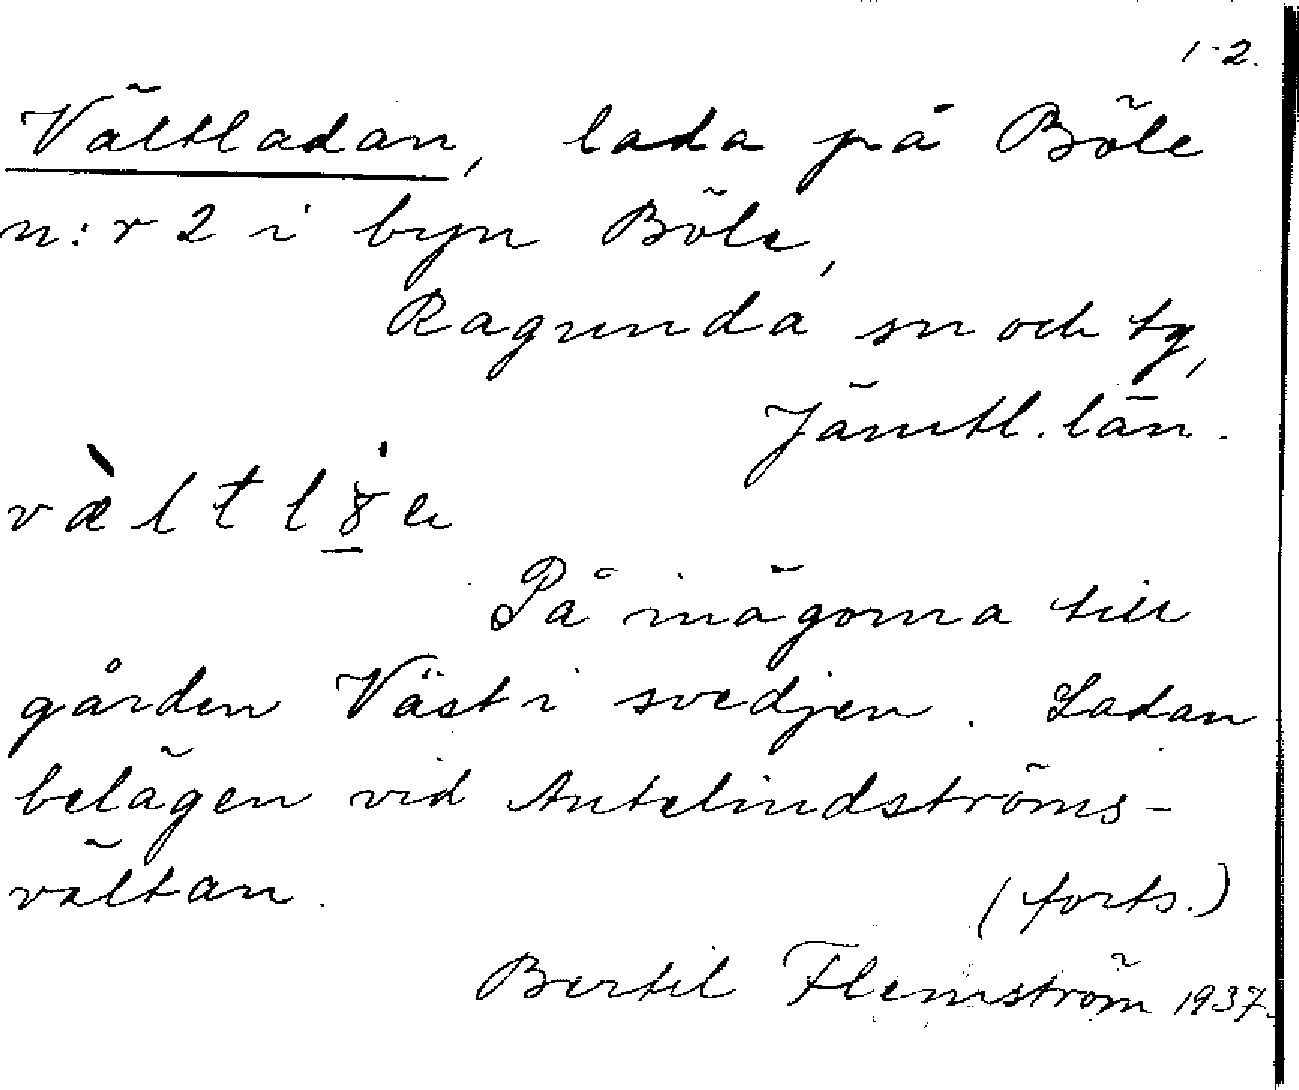 1-2.
Vältladan, lada på Böle
n:r 2 i byn Böle,
Ragunda sn och tg,
Jämtl. län.
På inägorna till
gården Väst i svedjen. Ladan
belägen vid Antelindströms-
vältan. (forts.)
Bertil Flemström 1937.